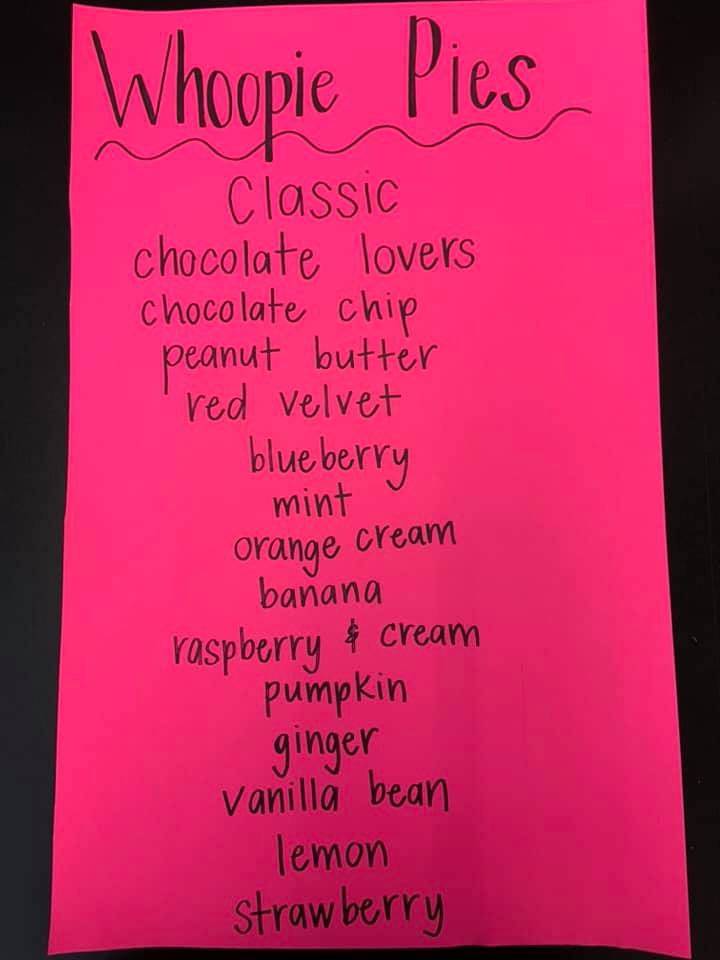 Whoopie Pies
Classic
chocolate lovers
chocolate chip
peanut butter
red velvet
blueberry
mint
orange cream
banana
raspberry & cream
pumpkin
ginger
vanilla bean
lemon
strawberry